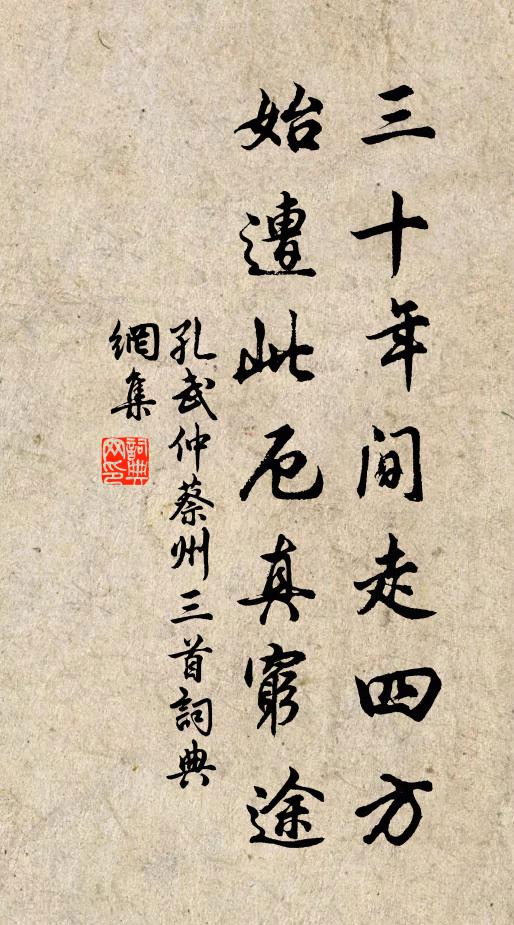 三十年間走四方
始遭此厄真窮途
孔武仲蔡州三首詞典
網集
詞典
网印